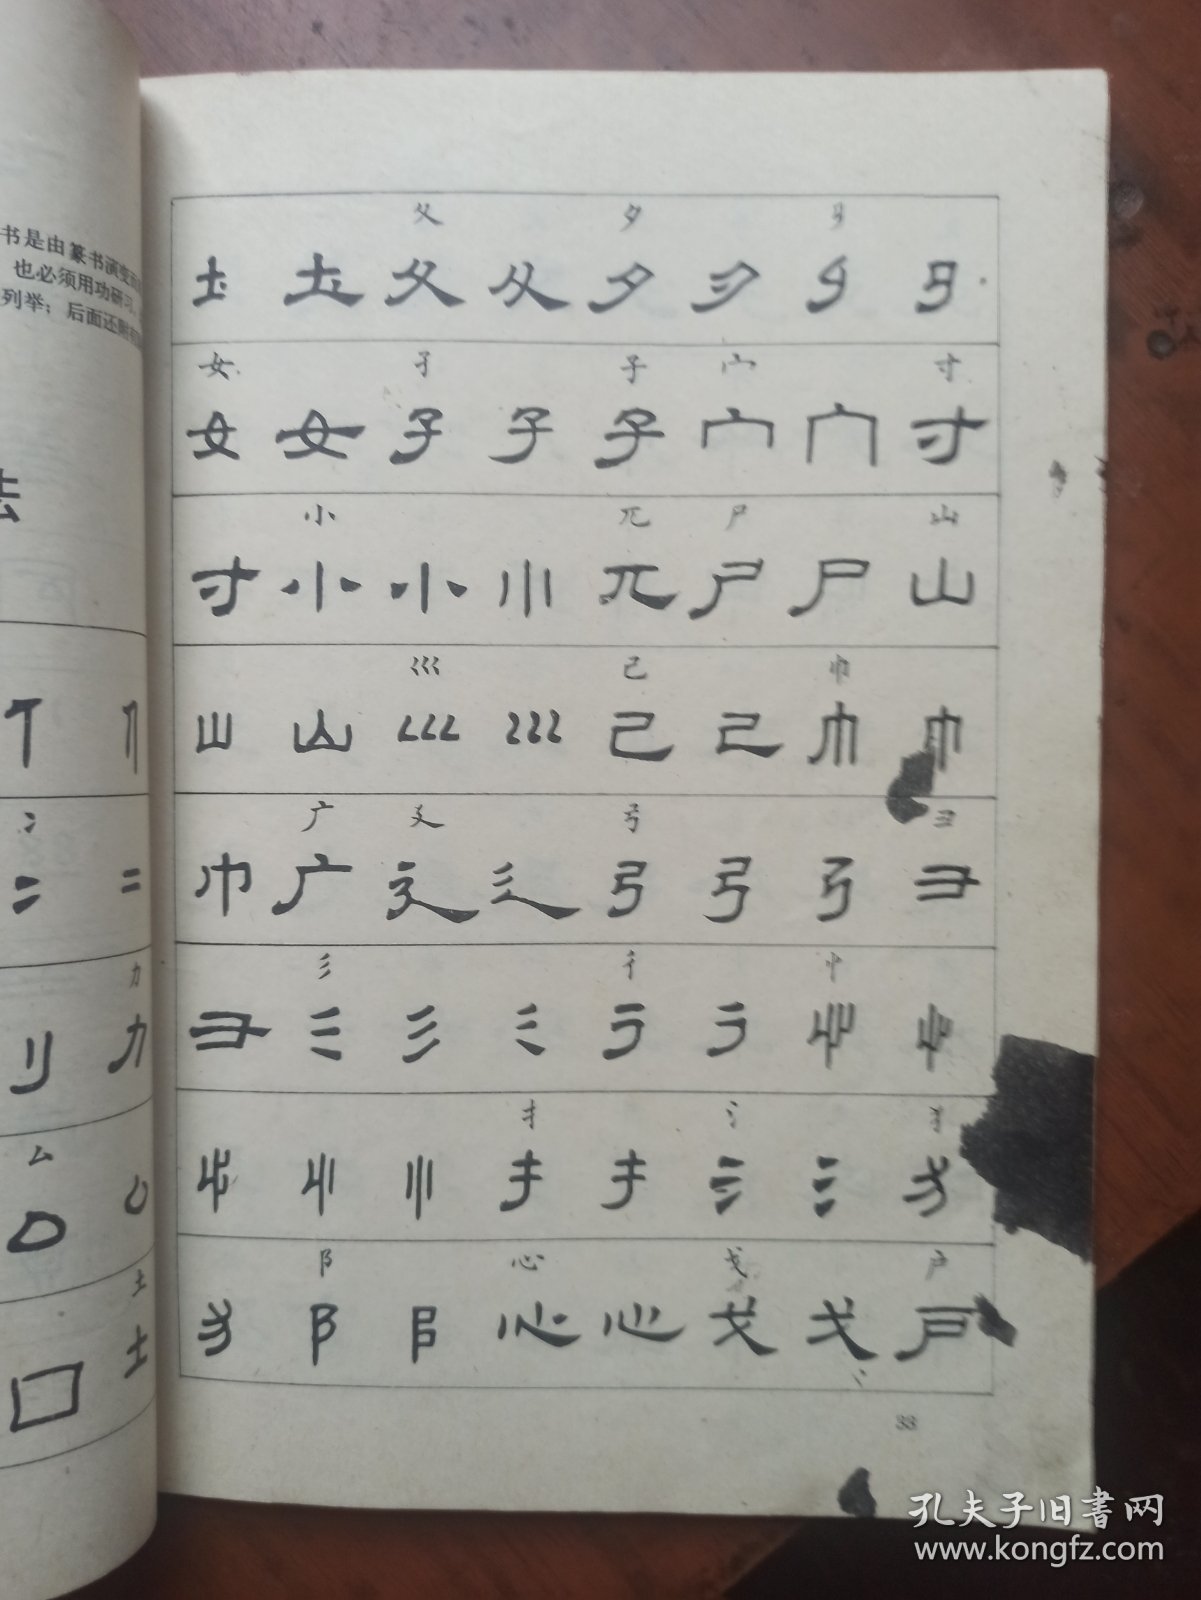 书是由篆书演变
也必须用功研习
列举；后面还
法
夂 夕
土 土 夂 夂 夕 夕
女 孑 子 宀 寸
女 女 子 子 子 宀 宀 寸
小 兀 尸 山
寸 小 小 小 兀 尸 尸 山
巛 己 巾
山 山 巛 巛 己 己 巾 巾
广 廴 弓 彐
巾 广 廴 廴 弓 弓 弓 彐
彡 彳 忄
彐 彡 彡 彡 彳 彳 忄 忄
扌 氵 犭
忄 忄 忄 扌 扌 氵 氵 犭
阝 心 戈 户
犭 阝 阝 心 心 戈 戈 户
33
冫
力
力
厶
土
土
孔夫子旧書网
www.kongfz.com